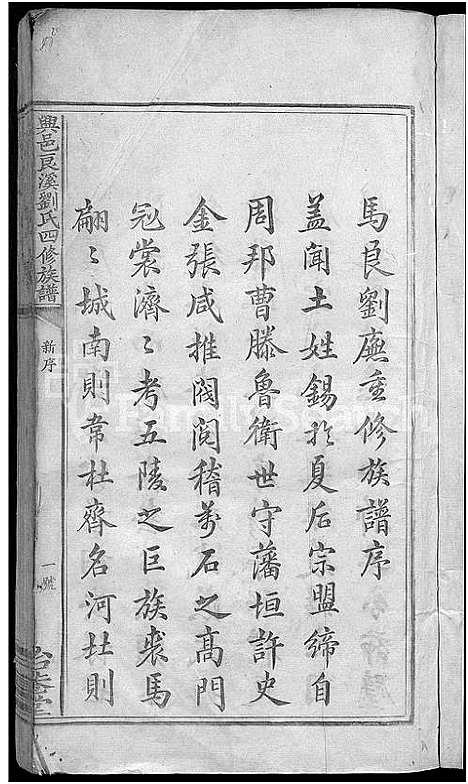 馬良劉廒重修族譜序
盖聞土姓錫於夏后宗盟締自
周邦曹滕魯衛世守藩垣許史
金張咸推閥閱稽萬石之高門
冠裳濟〻考五陵之巨族裘馬
翩〻城南則韋杜齊名河杜則
興邑良溪劉氏四修族譜
新序
一號
FamilySearch